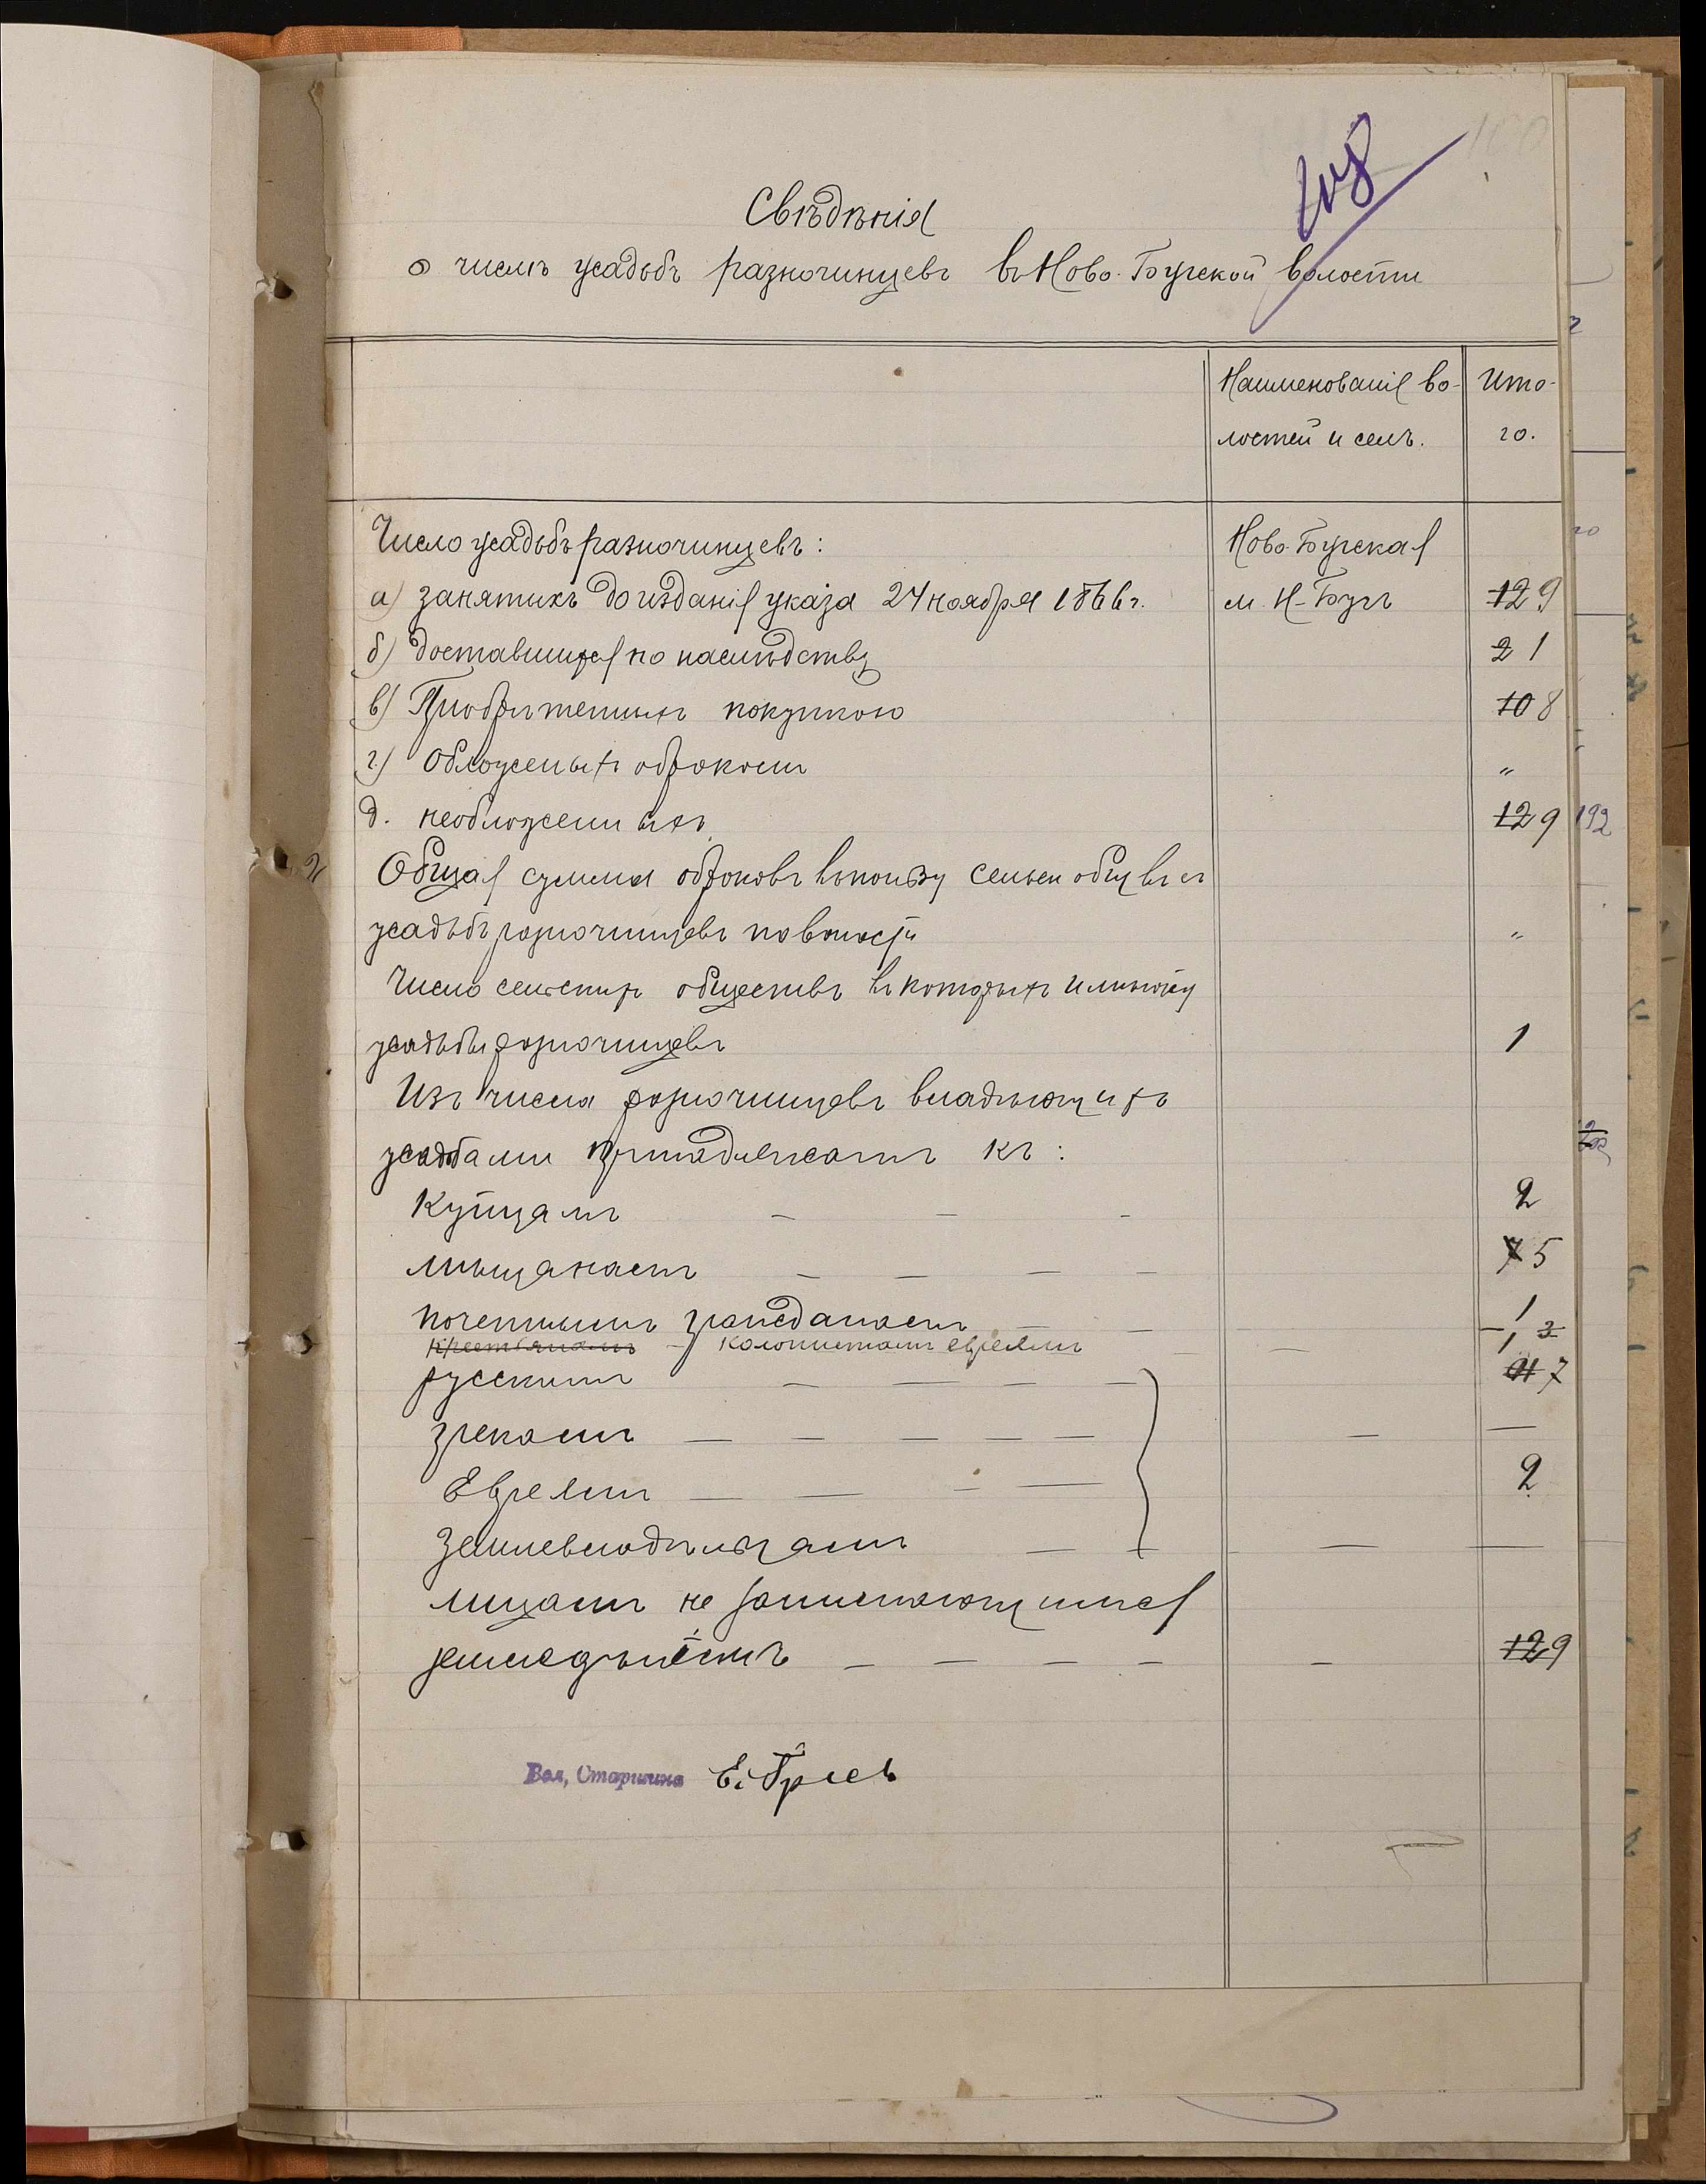 Свѣдѣнія
о числѣ усадьбъ разночинцевъ въ Ново-Бугской волости
Наименованія во-
лостей и селъ.
Ито-
го.
Число усадьбъ разночинцевъ: Ново-Бугская
а) занятыхъ до изданія указа 24 ноября 1866 г. м. Н-Бугъ 12 9
б) доставшихся по наслѣдству 2 1
в) Пріобрѣтенныхъ покупкою 10 8
г) Обложеныхъ оброкомъ "
д. необложенныхъ 12 9
Общая сумма оброковъ въ пользу сельск общ въ съ
усадьбъ разночинцевъ по волости "
Число сельскихъ обществъ въ которыхъ имѣются
усадьбы разночинцевъ 1
Изъ числа разночинцевъ владѣющихъ
усадьбами принадлежатъ къ:
Купцамъ - - - 2
мѣщанамъ — — — — 7 5
почетнымъ гражданамъ — 1
крестьянамъ - колонистамъ евреямъ — 1 3
русскимъ — — — — 7
грекамъ — — — — — — —
Евреямъ — — — — 2
Землевладѣльцамъ — — — —
лицамъ не занимающимся
земледѣліемъ — — — — — 12 9
Вол, Старшина